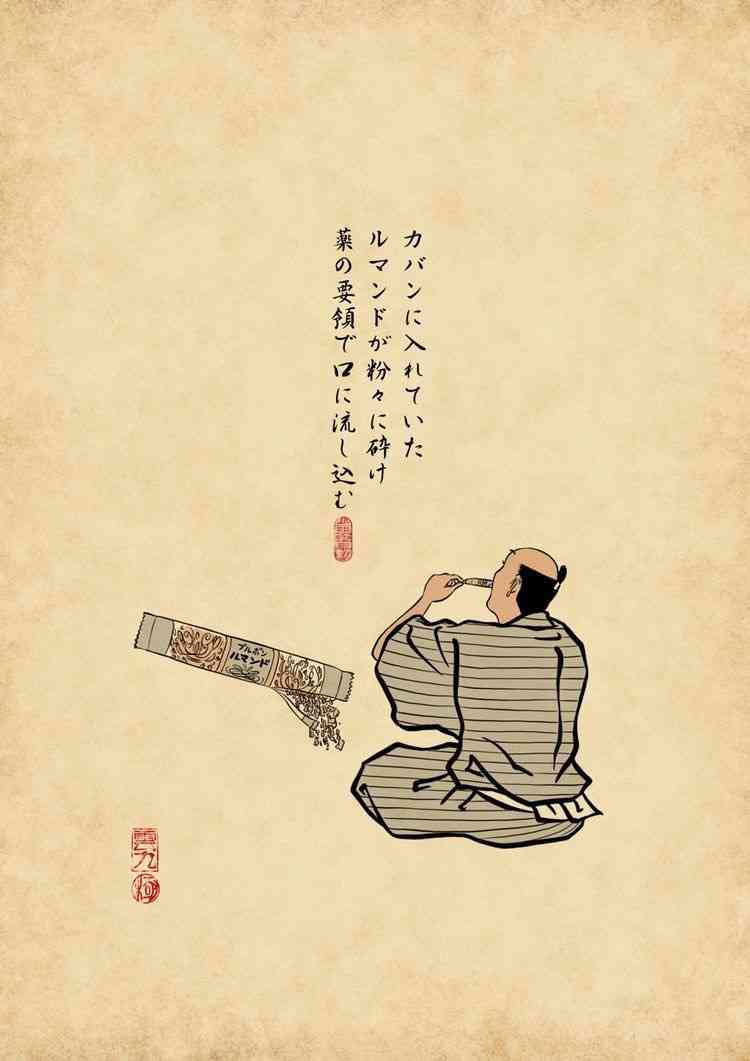 カバンに入れていた
ルマンドが粉々に砕け
薬の要領で口に流し込む
ブルボン
ルマンド